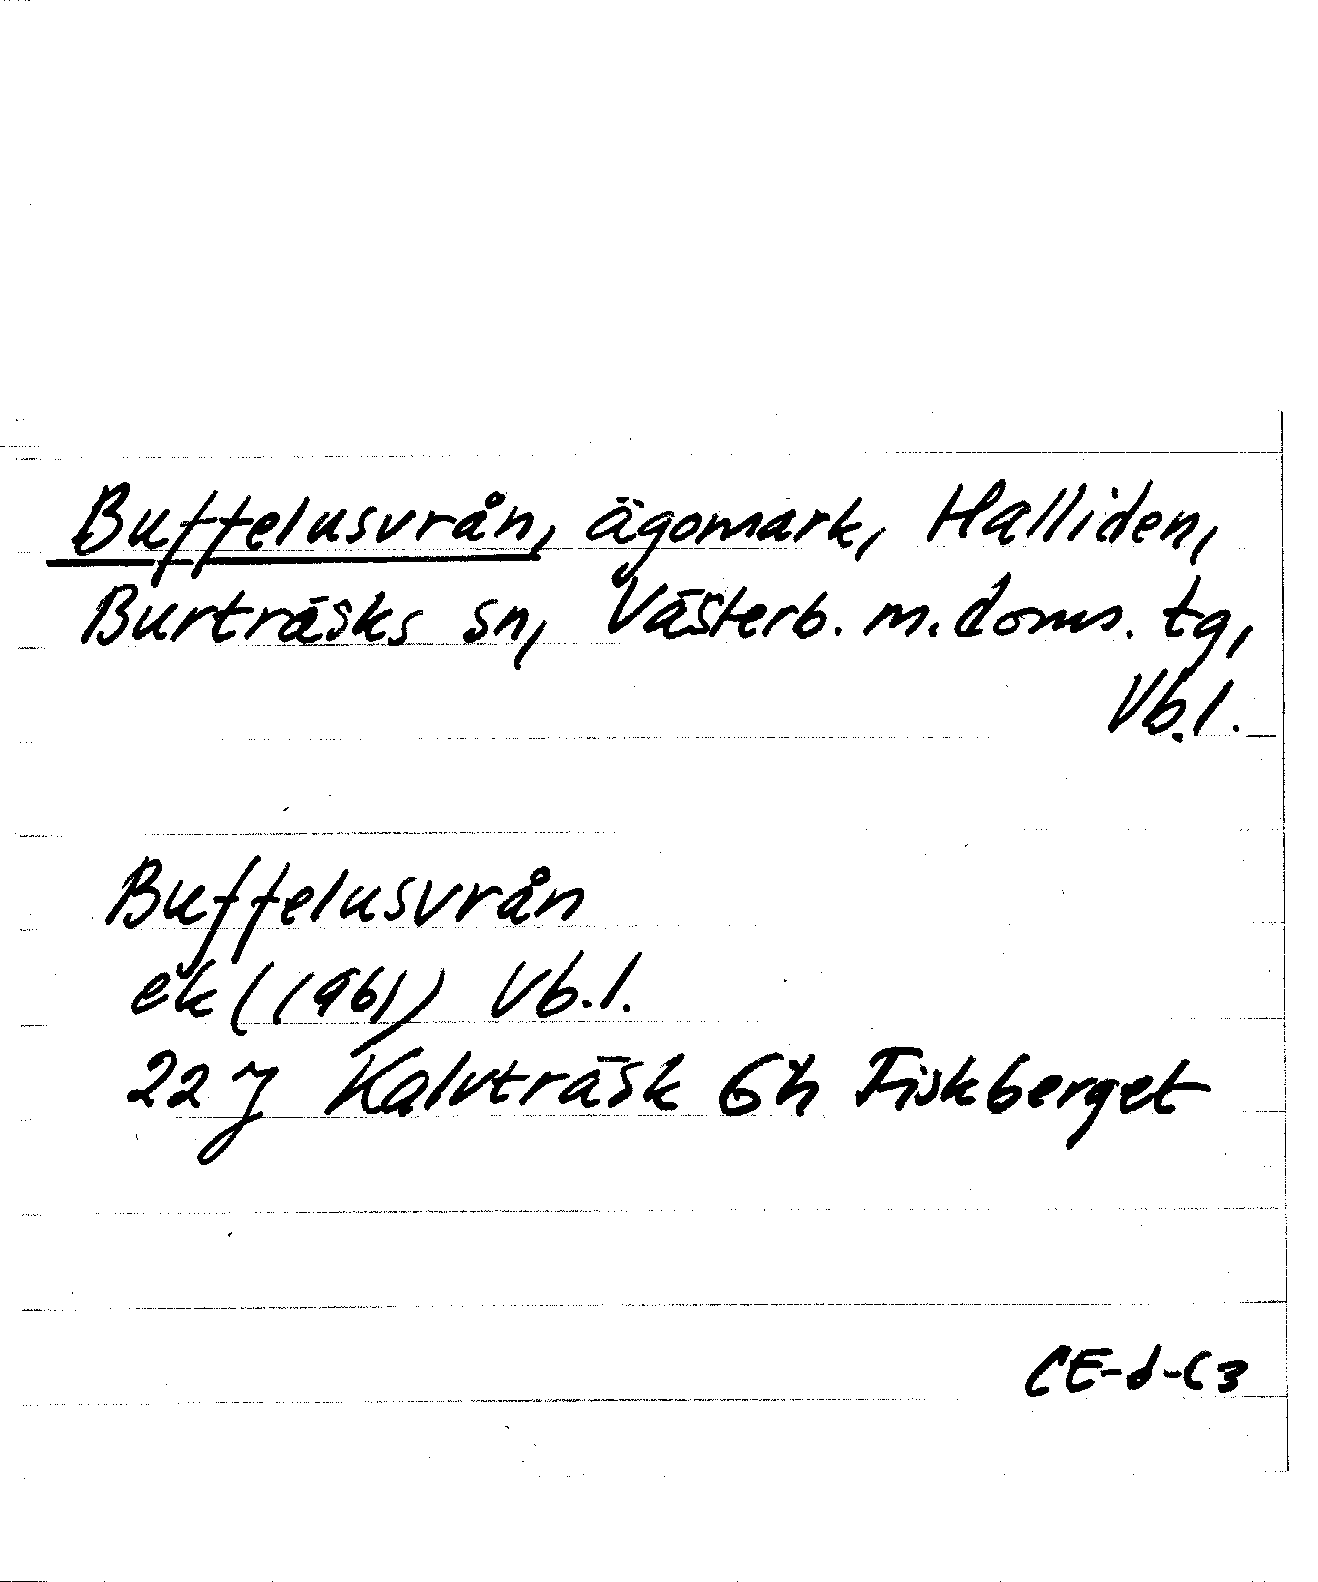 Buffelusvrån, ägomark, Halliden,
Burträsks sn, Västerb. m. doms. tg,
Vb.l.
Buffelusvrån
ek (1961) Vb.l.
22 J Kalvträsk 6h Fiskberget
CE-d-C3